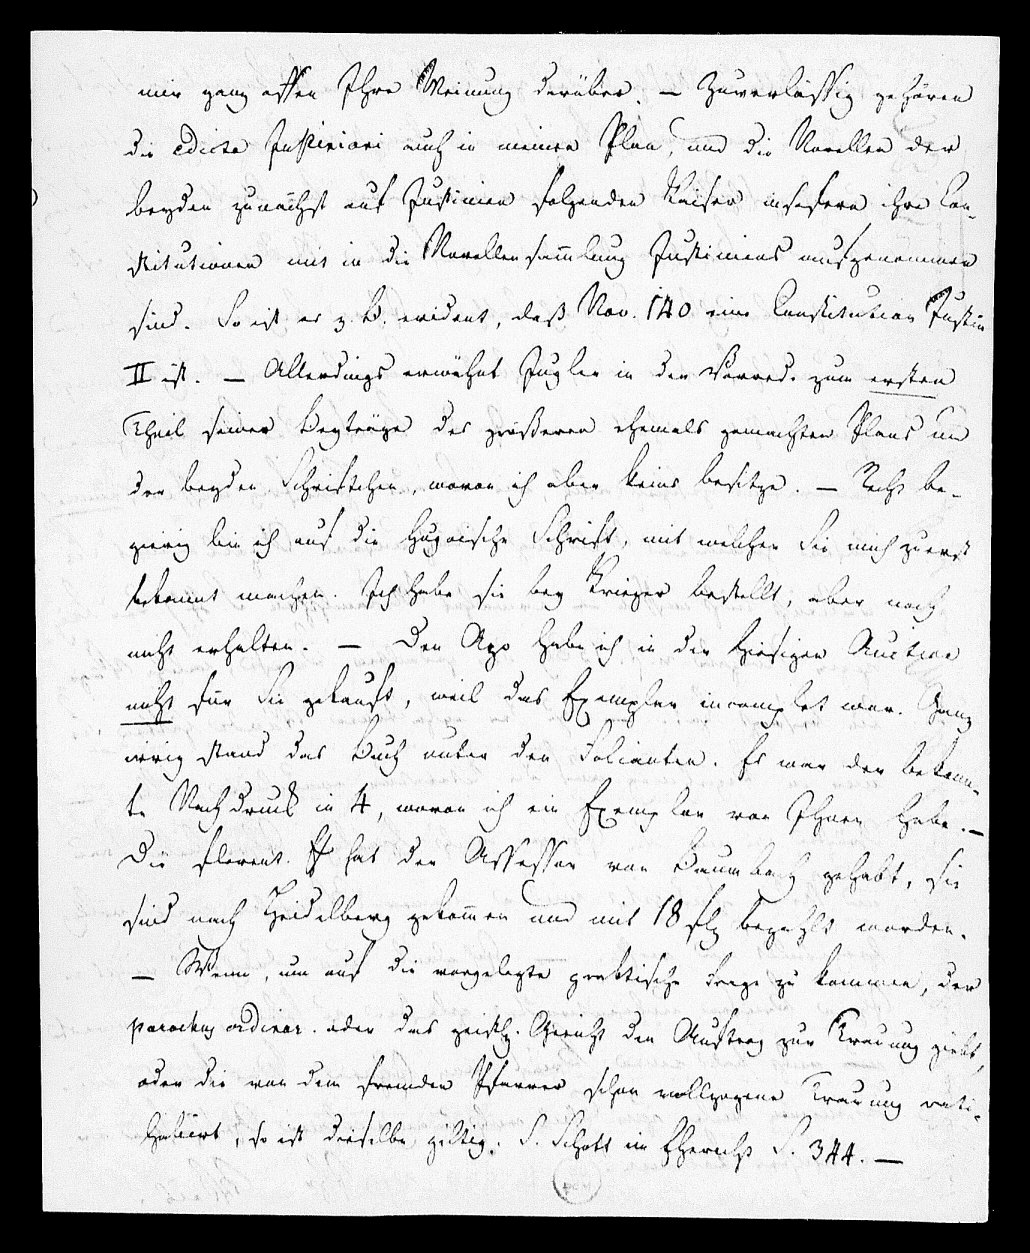 mir ganz offen Ihre Meinung darüber. – Zuverlässig gehören
die edicta Justiniani auch in meinen Plan, und die Novellen der
beyden zunächst auf Justinian folgenden Kaiser insofern ihre Con-
stitutionen mit in die Novellensammlung Justinians aufgenommen
sind. So ist es z. B. evident, daß Nov. 140 eine Constitution Justin
II ist. – Allerdings erwähnt Jugler in der Vorred. zum ersten
Theil seiner Beyträge des größeren ehemals gemachten Plans und
der beyden Schriftchen, wovon ich aber keins besitze. – Recht be-
gierig bin ich auf die Hugoische Schrift, mit welcher Sie mich zuerst
bekannt machen. Ich habe sie bey Krieger bestellt, aber noch
nicht erhalten. – Den Azo habe ich in der hiesigen Auction
nicht für Sie gekauft, weil das Exemplar incomplet war. Ganz
irrig stand das Buch unter den Folianten. Es war der bekann-
te Nachdruck in 4, wovon ich ein Exemplar von Ihnen habe. –
Die florent. ff hat der Assessor von Baumbach gehabt, sie
sind nach Heidelberg gekommen und mit 18 flh bezahlt worden.
– Wenn, um auf die vorgelegte praktische Frage zu kommen, der
parochus ordinar. oder das geistl. Gericht den Auftrag zur Trauung giebt,
oder die von dem fremden Pfarrer schon vollzogene Trauung rati-
habiert, so ist dieselbe giltig. S. Schott im Eherecht S. 344. –